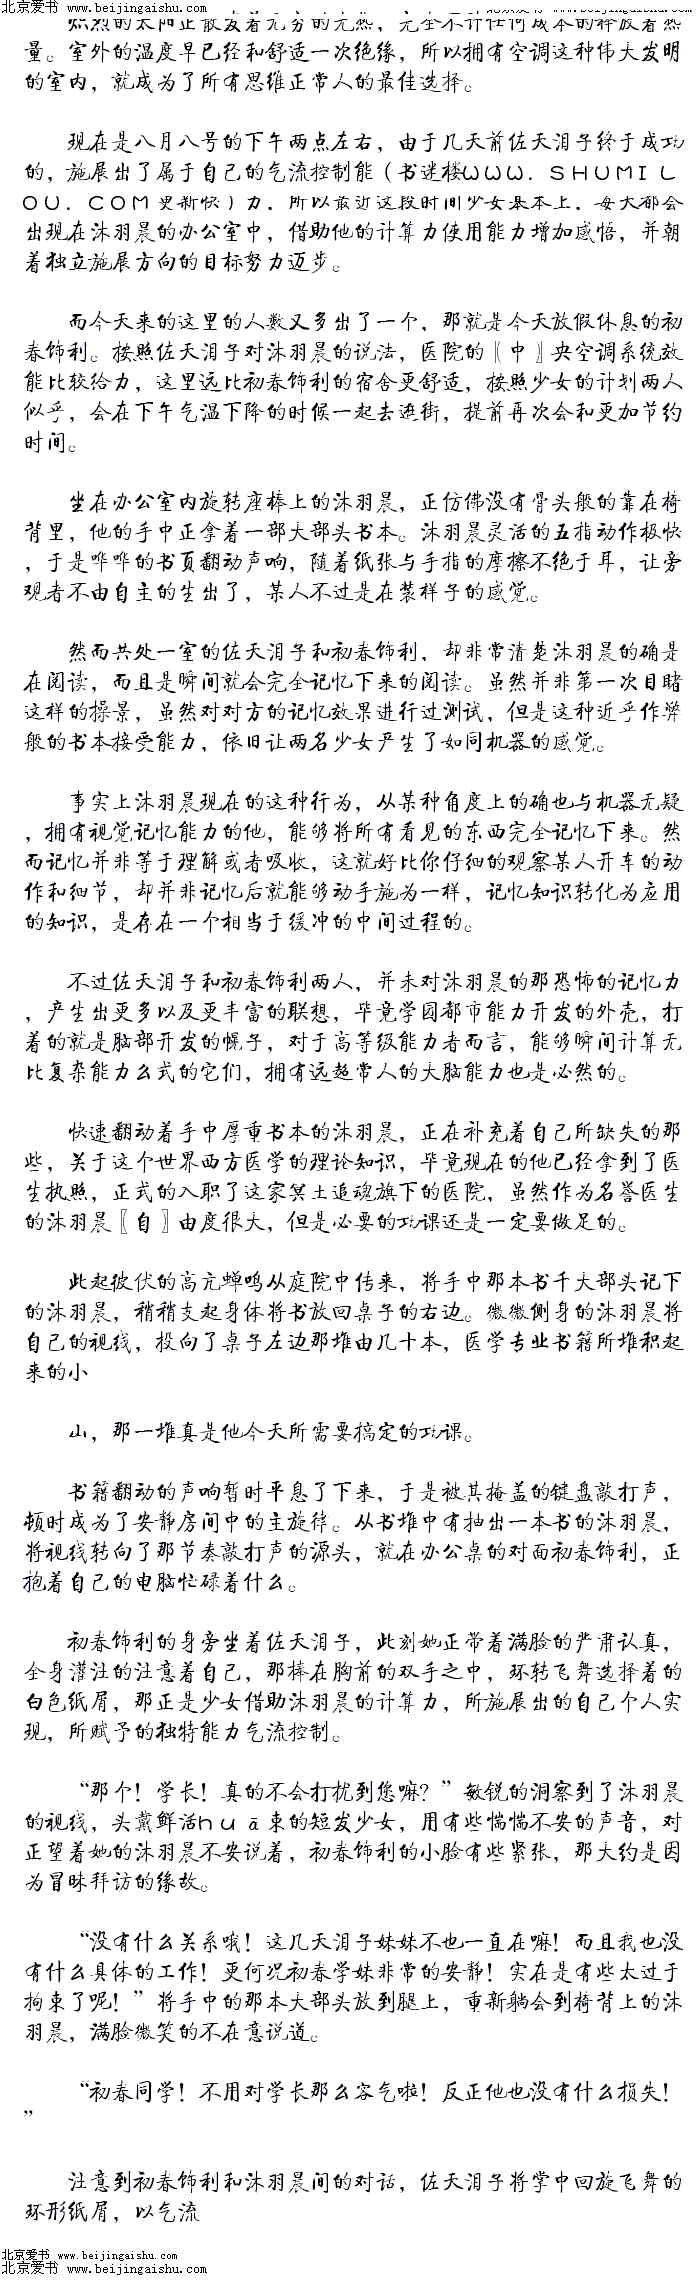 北京爱书 www.beijingaishu.com
炽烈的太阳正散发着无穷的光热，完全不计任何成本的释放着热
量。室外的温度早已经和舒适一次绝缘，所以拥有空调这种伟大发明
的室内，就成为了所有思维正常人的最佳选择。
现在是八月八号的下午两点左右，由于几天前佐天泪子终于成功
的，施展出了属于自己的气流控制能（书迷楼ＷＷＷ．ＳＨＵＭＩＬ
ＯＵ．ＣＯＭ更新快）力，所以最近这段时间少女基本上，每天都会
出现在沐羽晨的办公室中，借助他的计算力使用能力增加感悟，并朝
着独立施展方向的目标努力迈步。
而今天来的这里的人数又多出了一个，那就是今天放假休息的初
春饰利。按照佐天泪子对沐羽晨的说法，医院的〖中〗央空调系统效
能比较给力，这里远比初春饰利的宿舍更舒适，按照少女的计划两人
似乎，会在下午气温下降的时候一起去逛街，提前再次会和更加节约
时间。
坐在办公室内旋转座椅上的沐羽晨，正仿佛没有骨头般的靠在椅
背里，他的手中正拿着一部大部头书本。沐羽晨灵活的五指动作极快
，于是哗哗的书页翻动声响，随着纸张与手指的摩擦不绝于耳，让旁
观者不由自主的生出了，某人不过是在装样子的感觉。
然而共处一室的佐天泪子和初春饰利，却非常清楚沐羽晨的确是
在阅读，而且是瞬间就会完全记忆下来的阅读。虽然并非第一次目睹
这样的操景，虽然对对方的记忆效果进行过测试，但是这种近乎作弊
般的书本接受能力，依旧让两名少女产生了如同机器的感觉。
事实上沐羽晨现在的这种行为，从某种角度上的确也与机器无疑
，拥有视觉记忆能力的他，能够将所有看见的东西完全记忆下来。然
而记忆并非等于理解或者吸收，这就好比你仔细的观察某人开车的动
作和细节，却并非记忆后就能够动手施为一样，记忆知识转化为应用
的知识，是存在一个相当于缓冲的中间过程的。
不过佐天泪子和初春饰利两人，并未对沐羽晨的那恐怖的记忆力
，产生出更多以及更丰富的联想，毕竟学园都市能力开发的外壳，打
着的就是脑部开发的幌子，对于高等级能力者而言，能够瞬间计算无
比复杂能力公式的它们，拥有远超常人的大脑能力也是必然的。
快速翻动着手中厚重书本的沐羽晨，正在补充着自己所缺失的那
些，关于这个世界西方医学的理论知识，毕竟现在的他已经拿到了医
生执照，正式的入职了这家冥土追魂旗下的医院，虽然作为名誉医生
的沐羽晨〖自〗由度很大，但是必要的功课还是一定要做足的。
此起彼伏的高亢蝉鸣从庭院中传来，将手中那本书千大部头记下
的沐羽晨，稍稍支起身体将书放回桌子的右边。微微侧身的沐羽晨将
自己的视线，投向了桌子左边那堆由几十本，医学专业书籍所堆积起
来的小
山，那一堆真是他今天所需要搞定的功课。
书籍翻动的声响暂时平息了下来，于是被其掩盖的键盘敲打声，
顿时成为了安静房间中的主旋律。从书堆中有抽出一本书的沐羽晨，
将视线转向了那节奏敲打声的源头，就在办公桌的对面初春饰利，正
抱着自己的电脑忙碌着什么。
初春饰利的身旁坐着佐天泪子，此刻她正带着满脸的严肃认真，
全身灌注的注意着自己，那捧在胸前的双手之中，环转飞舞选择着的
白色纸屑，那正是少女借助沐羽晨的计算力，所施展出的自己个人实
现，所赋予的独特能力气流控制。
“那个！学长！真的不会打扰到您嘛？”敏锐的洞察到了沐羽晨
的视线，头戴鲜活ｈｕā束的短发少女，用有些惴惴不安的声音，对
正望着她的沐羽晨不安说着，初春饰利的小脸有些紧张，那大约是因
为冒昧拜访的缘故。
“没有什么关系哦！这几天泪子妹妹不也一直在嘛！而且我也没
有什么具体的工作！更何况初春学妹非常的安静！实在是有些太过于
拘束了呢！”将手中的那本大部头放到腿上，重新躺会到椅背上的沐
羽晨，满脸微笑的不在意说道。
“初春同学！不用对学长那么客气啦！反正他也没有什么损失！
”
注意到初春饰利和沐羽晨间的对话，佐天泪子将掌中回旋飞舞的
环形纸屑，以气流
北京爱书 www.beijingaishu.com
北京爱书 www.beijingaishu.com